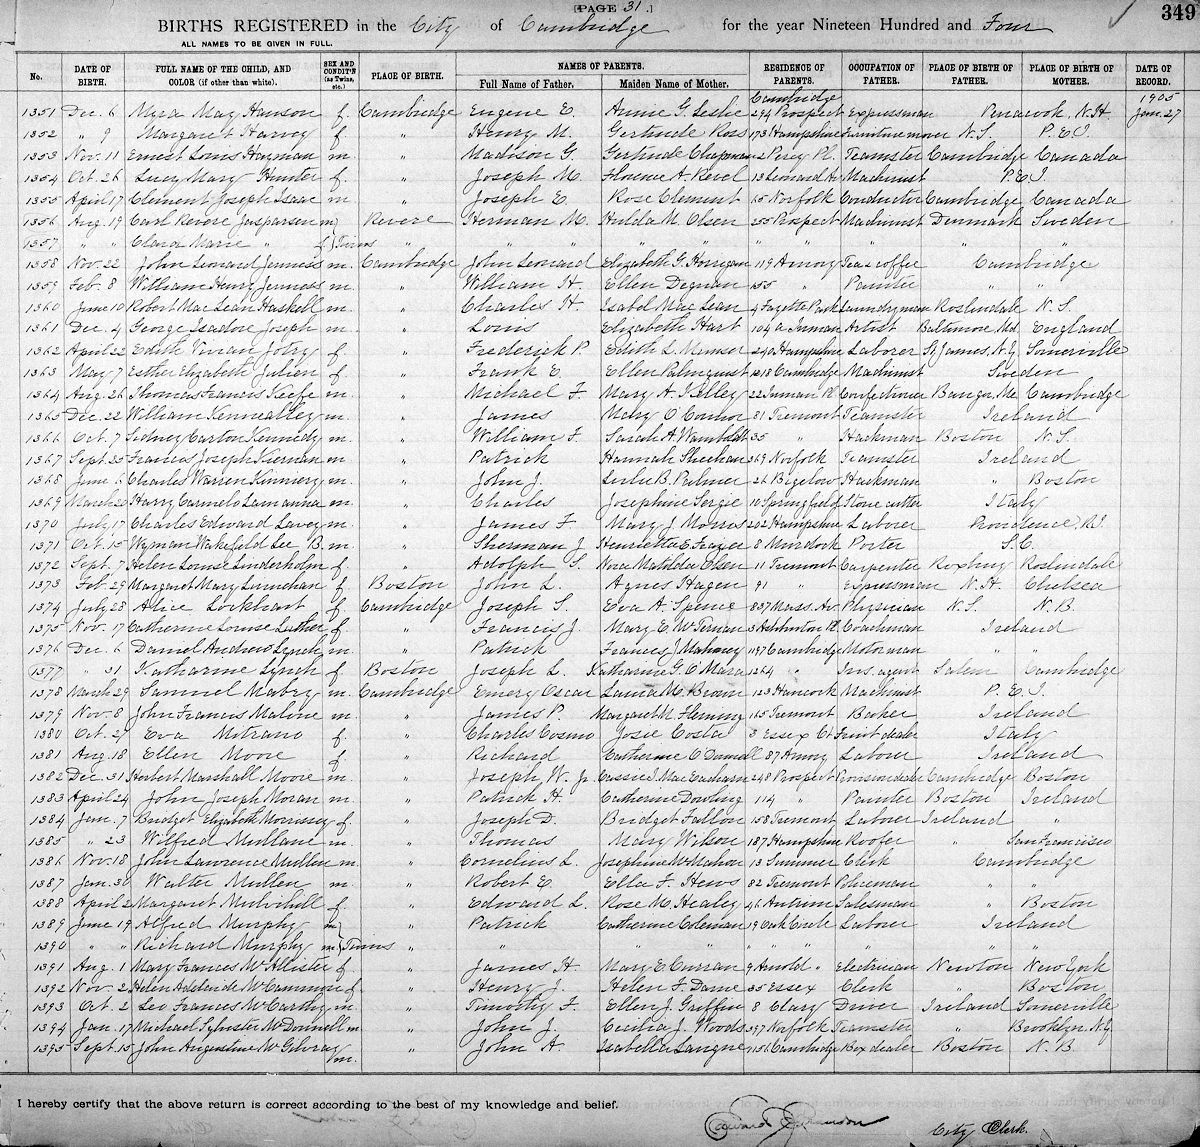 [PAGE 31.]
349
BIRTHS REGISTERED in the City of Cambridge for the year Nineteen Hundred and Four
ALL NAMES TO BE GIVEN IN FULL.
No. DATE OF BIRTH. FULL NAME OF THE CHILD, AND COLOR (if other than white). SEX AND CONDIT'N (as Twins, etc.) PLACE OF BIRTH. NAMES OF PARENTS. Full Name of Father. Maiden Name of Mother. RESIDENCE OF PARENTS. OCCUPATION OF FATHER. PLACE OF BIRTH OF FATHER. PLACE OF BIRTH OF MOTHER. DATE OF RECORD.
Cambridge 1905
1351 Dec. 6 Myra May Hanson f. Cambridge Eugene E. Annie G. Leslie 294 Prospect Expressman Penacook, N.H. Jan. 27
1352 " 9 Margaret Harvey f. " Henry M. Gertrude Ross 173 Hampshire Furniture mover N.S. P.E.I.
1353 Nov. 11 Ernest Louis Hayman m. " Madison G. Gertrude Chapman 2 Perry Pl. Teamster Cambridge Canada
1354 Oct. 26 Lucy Mary Hunter f. " Joseph M. Florence A. Revel 13 Leonard Av Machinist P.E.I.
1355 April 17 Clement Joseph Isaac m. " Joseph E. Rose Clement 65 Norfolk Conductor Cambridge Canada
1356 Aug. 19 Carl Revere Jaspersen m Revere Herman M. Hulda M. Olsen 255 Prospect Machinist Denmark Sweden
1357 " " Clara Marie " f. } Twins " " " " " " " " "
1358 Nov. 22 John Leonard Jenness m. Cambridge John Leonard Elizabeth G. Horrigan 119 Amory Tea & coffee Cambridge
1359 Feb. 8 William Henry Jenness m. " William H. Ellen Degnan 155 " Painter " "
1360 June 10 Robert Mac Lean Haskell m. " Charles H. Isabel Mac Lean 4 Fayette Park Laundryman Roslindale N.S.
1361 Dec. 4 George Isadore Joseph m. " Louis Elizabeth Hart 104a Inman Artist Baltimore Md. England
1362 April 22 Edith Vivian f. " Frederick P. Edith L. 240a Hampshire Laborer St. James, N.Y. Somerville
1363 May 7 Esther Elizabeth Julien f. " Frank E. Ellen Palmquist 1218 Cambridge Machinist Sweden
1364 Aug. 26 Thomas Francis Keefe m. " Michael F. Mary A. Kelley 22 Inman Pl. Confectioner Bangor, Me. Cambridge
1365 Dec. 22 William Kennealley m. " James Mary O'Connor 81 Tremont Teamster Ireland
1366 Oct. 7 Sidney Carton Kennedy m. " William F. Sarah A. Wamboldt 35 " Hackman Boston N.S.
1367 Sept. 25 Francis Joseph Kiernan m " Patrick Hannah Sheehan 369 Norfolk Teamster Ireland
1368 June 6 Charles Warren Kinnery m. " John J. Leslie B. Palmer 26 Bigelow Hackman " Boston
1369 March 20 Harry Carmelo Lamanna m. " Charles Josephine Sergie 10 Springfield Stone cutter Italy
1370 July 17 Charles Edward Lavey m. " James F. Mary J. Morris 202 Hampshire Laborer Providence, R.I.
1371 Oct. 15 Wyman Wakefield Lee B. m. " Sherman J. Henrietta E. Frazer 8 Murdock Porter S.C.
1372 Sept. 7 Helen Louise Linderholm f. " Adolph G. Nora Matilda Olsen 11 Tremont Carpenter Roxbury Roslindale
1373 Feb. 29 Margaret Mary Linnehan f. Boston John L. Agnes Hagen 91 " Expressman N.H. Chelsea
1374 July 28 Alice Lockhart f. Cambridge Joseph S. Eva A. Spence 837 Mass. Av. Physician N.S. N.B.
1375 Nov. 17 Catherine Louise Luther f. " Francis J. Mary E. McTernan 3 Ashburton Pl. Coachman Ireland
1376 Dec. 6 Daniel Andrew Lynch m. " Patrick Frances Mahoney 1197 Cambridge Motorman " "
1377 " 31 Katharine Lynch f Boston Joseph L. Katharine G. O'Mara 1264 " Ins. agent Salem Cambridge
1378 March 29 Samuel Mabry m. Cambridge Emery Oscar Laura M. Brown 123 Hancock Machinist P.E.I.
1379 Nov. 8 John Francis Malone m. " James P. Margaret M. Fleming 165 Tremont Baker Ireland
1380 Oct. 27 Eva Mitrano f. " Charles Cosmo Josie Costa 8 Essex Ct. Fruit dealer Italy
1381 Aug. 18 Ellen Moore f " Richard Catherine O'Donnell 87 Amory Laborer Ireland
1382 Dec. 31 Herbert Marshall Moore m. " Joseph W. Jr. Cassie I. Mac Eachern 248 Prospect Provision dealer Cambridge Boston
1383 April 24 John Joseph Moran m. " Patrick H. Catherine Dowling 114 " Painter Boston Ireland
1384 Jan. 7 Bridget Elizabeth Morrissey f. " Joseph D. Bridget Fallon 158 Tremont Laborer Ireland "
1385 " 23 Wilfred Mullane m. " Thomas Mary Wilson 187 Hampshire Roofer " San Francisco
1386 Nov. 18 John Lawrence Mullen m. " Cornelius L. Josephine McMahon 13 Summer Clerk Cambridge
1387 Jan. 30 Walter Mullen m. " Robert E. Ella F. Hews 82 Tremont Policeman " "
1388 April 2 Margaret Mulvihill f. " Edward L. Rose M. Healey 46 Antrim Salesman " Boston
1389 June 19 Alfred Murphy m " Patrick Catherine Coleman 19 Oak Circle Laborer Ireland
1390 " " Richard Murphy m } Twins " " " " " " " "
1391 Aug. 1 Mary Frances McAllister f. " James H. Mary E. Curran 9 Arnold " Electrician Newton New York
1392 Nov. 2 Helen Adelaide McCammon f. " Henry J. Helen F. Dame 35 Essex Clerk " Boston
1393 Oct. 2 Leo Francis McCarthy m. " Timothy F. Ellen J. Griffin 8 Clary Driver Ireland Somerville
1394 Jan. 17 Michael Sylvester McDonnell m " John J. Cecilia J. Woods 397 Norfolk Teamster " Brooklyn, N.Y.
1395 Sept. 15 John Augustine McGilvray m. " John A. Isabella Langne 1156 Cambridge Box dealer Boston N.B.
I hereby certify that the above return is correct according to the best of my knowledge and belief.
Edward J. Brandon
City Clerk.